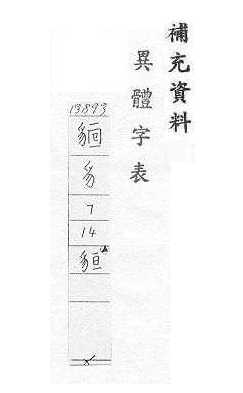 補充資料
異體字表
13893
豸
7
14
貆